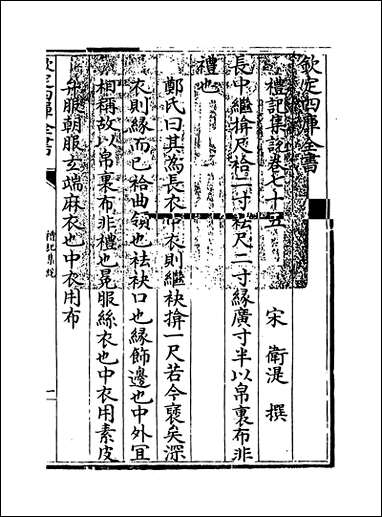 欽定四庫全書
禮記集說卷七十五
宋 衛湜 撰
長中繼揜尺袷二寸袪尺二寸緣廣寸半以帛裏布非
禮也
鄭氏曰其為長衣中衣則繼袂揜一尺若今褎矣深
衣則緣而已袷曲領也袪袂口也緣飾邊也中外宜
相稱故以帛裏布非禮也冕服絲衣也中衣用素皮
弁服朝服玄端麻衣也中衣用布
欽定四庫全書
禮記集說
一